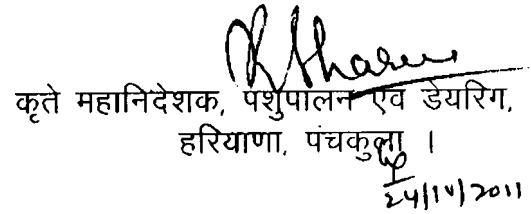 कृते महानिदेशक, पशुपालन एवं डेयरिंग,
हरियाणा, पंचकुला ।
24/10/2011